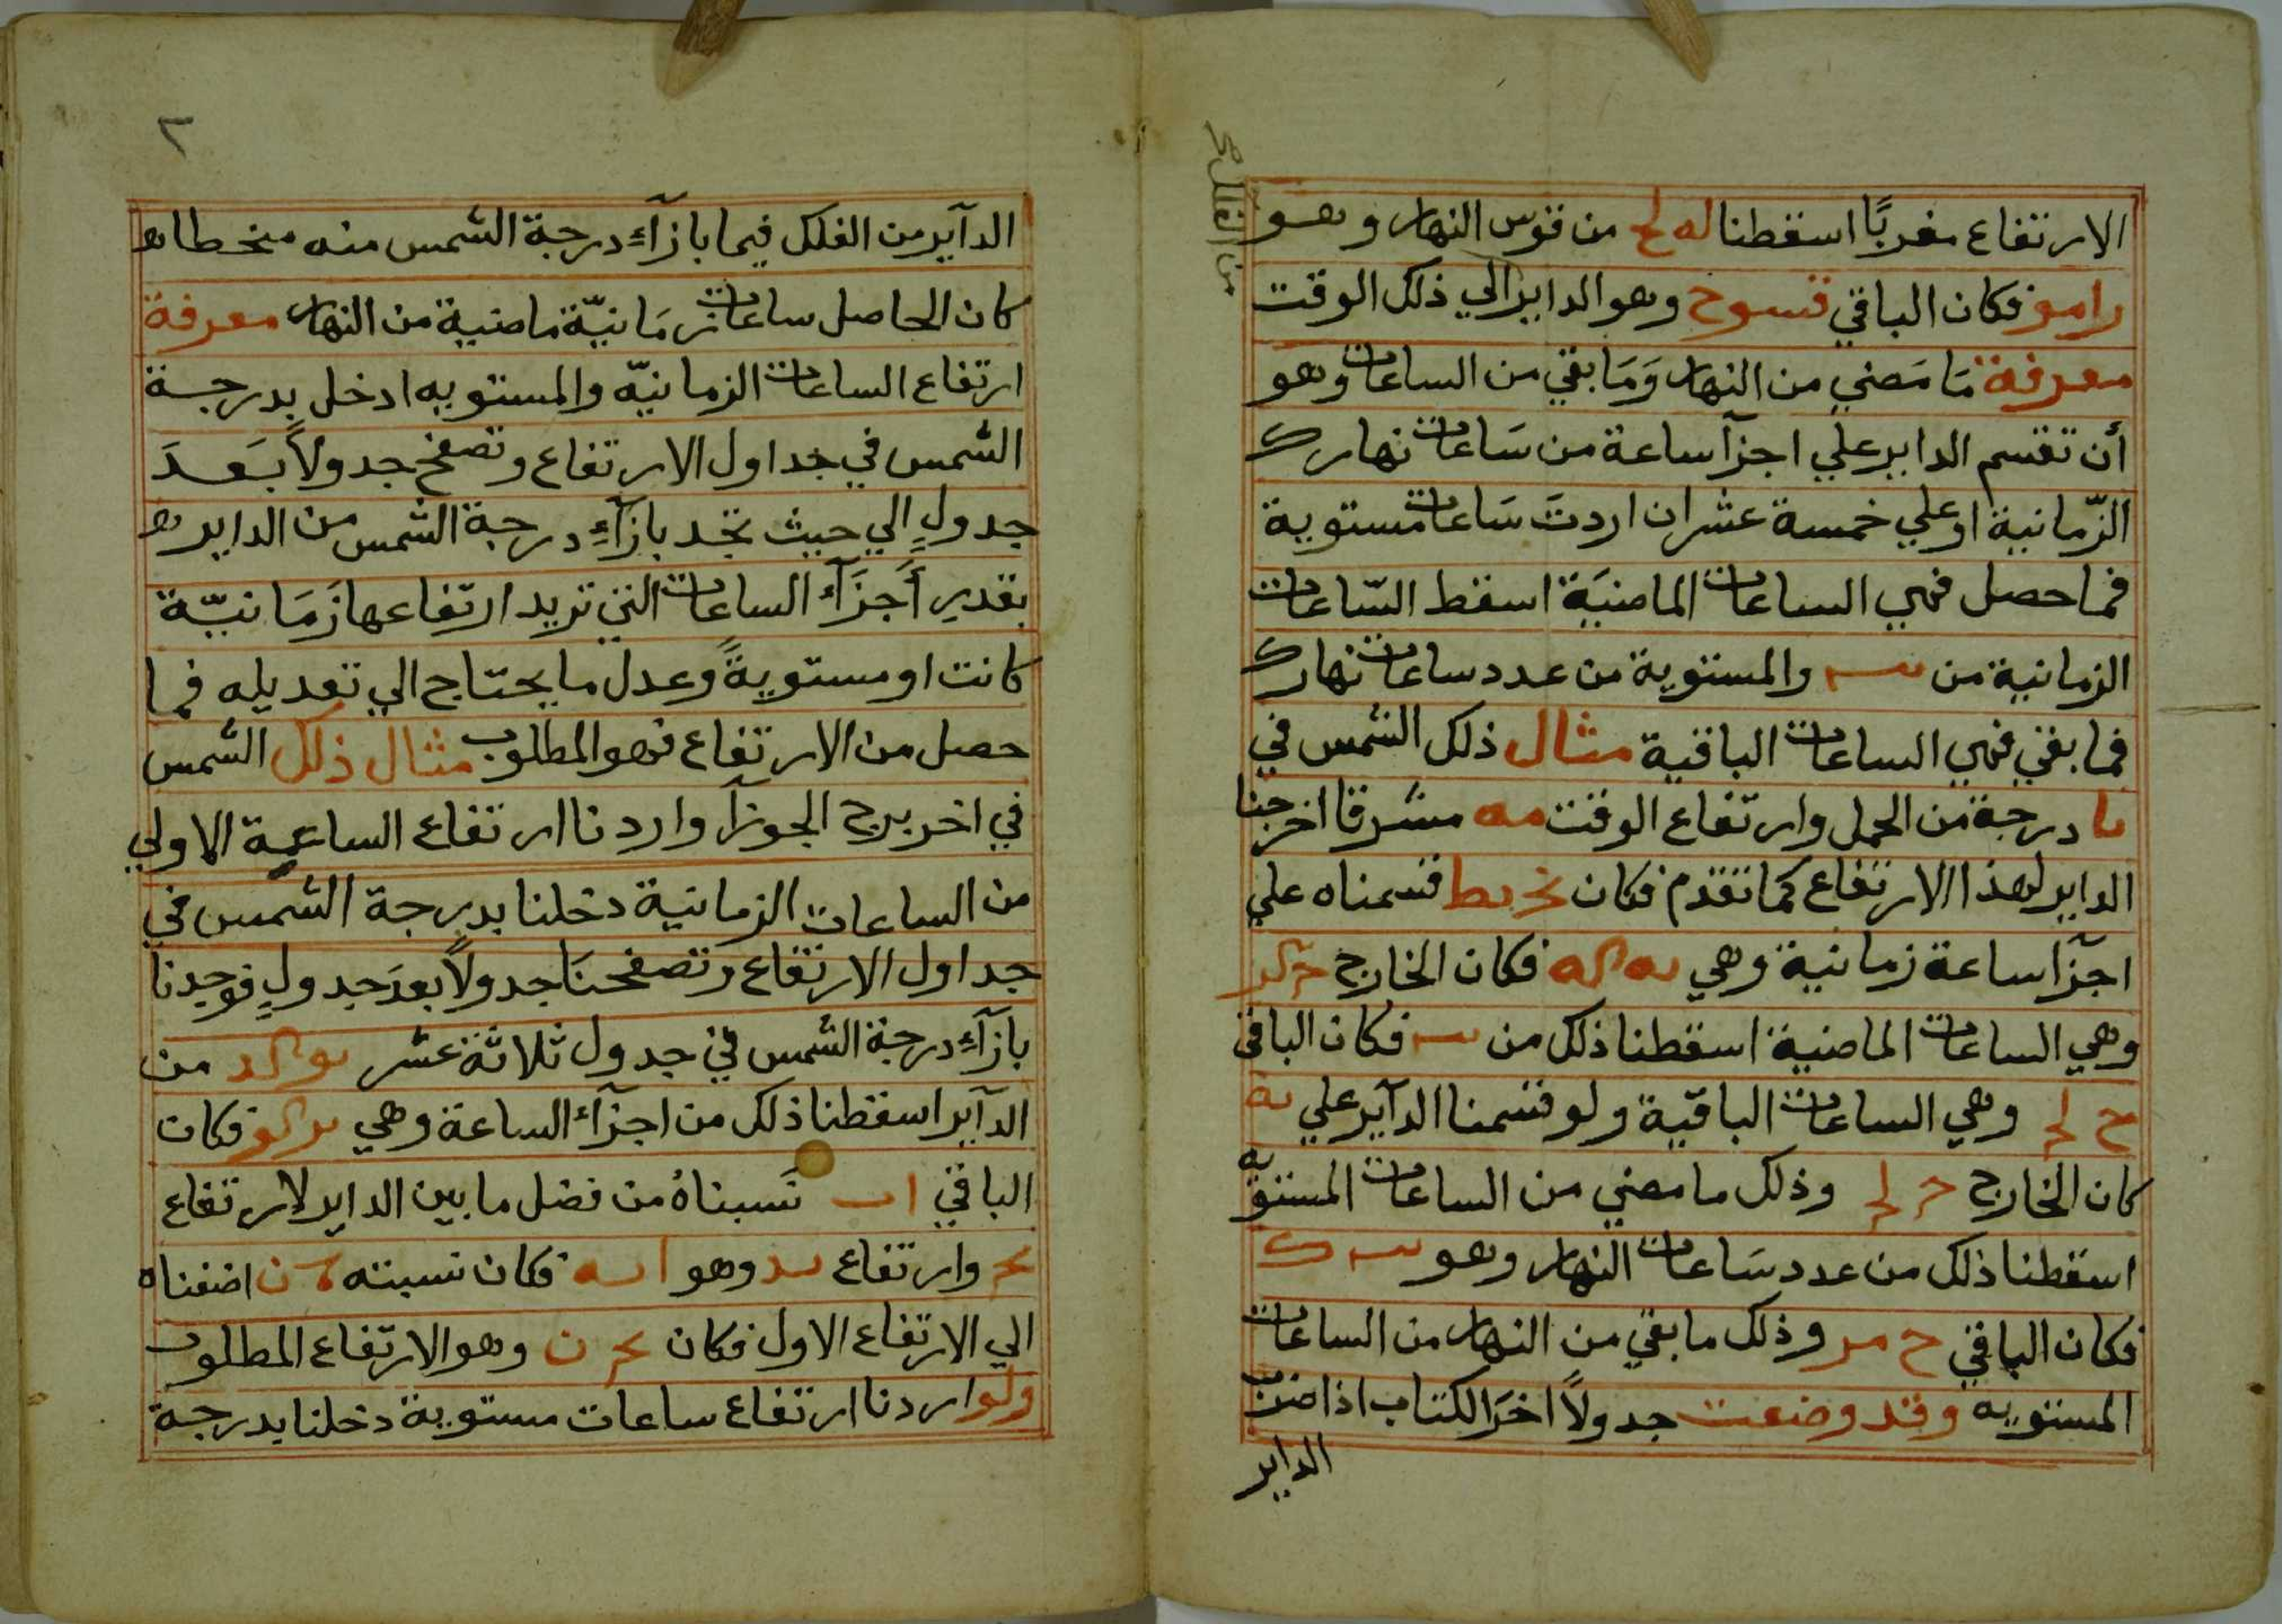 الارتفاع مغربًا اسقطنا له لح من قوس النهار وهو
را مو فكان الباقي قسو ح وهو الداير الي ذلك الوقت
معرفة مَا مَضي من النهار وَمَا بقي من الساعات وهو
أن تقسم الداير علي اجزآ ساعة من سَاعات نهارك
الزّمانية او علي خمسة عشر ان اردتَ سَاعات مستوية
فما حصل فهي الساعات الماضيَة اسقط السّاعات
الزمانية من يب والمستوية من عدد ساعات نهارك
فما بقي فهي الساعات الباقية مثال ذلك الشمس في
يا درجة من الحمل وارتفاع الوقت مه مشرقا اخرجنا
الداير لهذا الارتفاع كما تقدم فكان نح يط قسمناه علي
اجزآ ساعة زمانية وهي يه كه فكان الخارج
وهي الساعات الماضية اسقطنا ذلك من يب فكان الباقي
ح لح وهي الساعات الباقية ولو قسمنا الدآير علي يه
كان الخارج ح لح وذلك ما مضي من الساعات المستويه
اسقطنا ذلك من عدد سَاعات النهار وهو يب ك
فكان الباقي ح مر وذلك ما بقي من النهار من الساعات
المستويه وقد وضعت جدولاً اخرَ الكتاب اذا ضربت
الداير
٢
الدآير من الفلك فيما بازآءِ درجة الشمس منه منحطا
كان الحاصل ساعات زمَانيّة ماضية من النهار معرفة
ارتفاع الساعات الزمانيّه والمستويه ادخل بدرجة
الشمس في جداول الارتفاع وتصفح جدولاً بَعدَ
جدولٍ الي حيث تجد بازآءِ درجة الشمس من الداير
بقدرِ أَجزَآءِ الساعات التي تريد ارتفاعها زمَانيّة
كانت او مستويةً وعدل ما يحتاج الي تعديله فما
حصل من الارتفاع فهو المطلوب مثال ذلك الشمس
في اخر برج الجوزآ واردنا ارتفاع الساعة الاولي
من الساعات الزمانية دخلنا بدرجة الشمس في
جداول الارتفاع وتصفحنَا جدولاً بعدَ جدولٍ فوجدنا
بازآءِ درجة الشمس في جدول ثلاثة عشر يو كد من
الدآير اسقطنا ذلك من اجزآء الساعة وهي يز كو فكان
الباقي ا ب نَسبناهُ من فضل ما بين الداير لارتفاع
يح وارتفاع يد وهو ا يه فكان نسبته ن اضفناه
الي الارتفاع الاول فكان يح ن وهو الارتفاع المطلوب
ولو اردنا ارتفاع ساعات مستوية دخلنا بدرجة